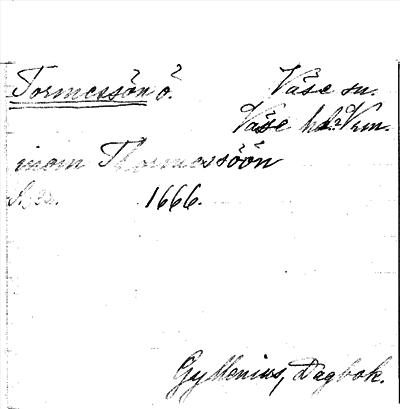 Tormessön ö. Väse sn.
Väse hd Vrm.
inom Thormessöön
S. 32. 1666.
Gyllenius, Dagbok.